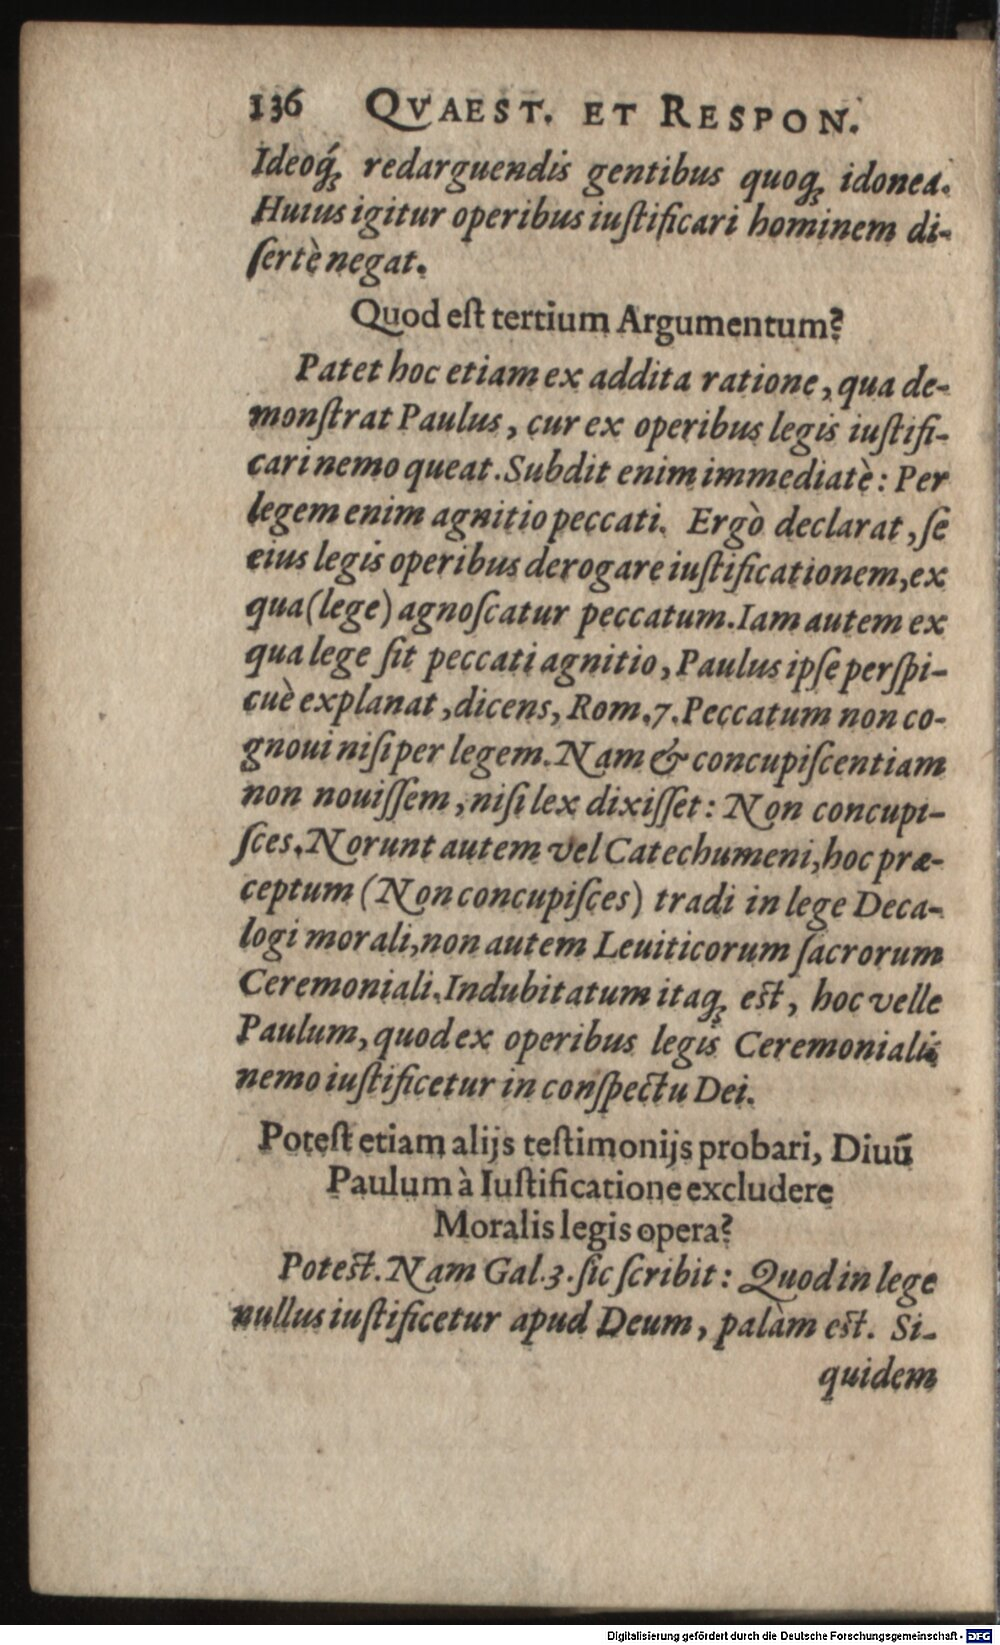 136 QVAEST. ET RESPON.
Ideoq́; redarguendis gentibus quoq; idonea.
Huius igitur operibus iuſtificari hominem di-
ſertè negat.
Quod eſt tertium Argumentum?
Patet hoc etiam ex addita ratione, qua de-
monſtrat Paulus, cur ex operibus legis iuſtifi-
cari nemo queat. Subdit enim immediatè: Per
legem enim agnitio peccati. Ergò declarat, ſe
eius legis operibus derogare iuſtificationem, ex
qua (lege) agnoſcatur peccatum. Iam autem ex
qua lege ſit peccati agnitio, Paulus ipſe perſpi-
cuè explanat, dicens, Rom. 7. Peccatum non co-
gnoui niſi per legem. Nam & concupiſcentiam
non nouiſſem, niſi lex dixiſſet: Non concupi-
ſces. Norunt autem vel Catechumeni, hoc præ-
ceptum (Non concupiſces) tradi in lege Deca-
logi morali, non autem Leuiticorum ſacrorum
Ceremoniali. Indubitatum itaq; eſt, hoc velle
Paulum, quod ex operibus legis Ceremonialis
nemo iuſtificetur in conſpectu Dei.
Poteſt etiam alijs teſtimonijs probari, Diuū
Paulum à Iuſtificatione excludere
Moralis legis opera?
Poteſt. Nam Gal. 3. ſic ſcribit: Quod in lege
nullus iuſtificetur apud Deum, palàm eſt. Si-
quidem
Digitalisierung gefördert durch die Deutsche Forschungsgemeinschaft - DFG